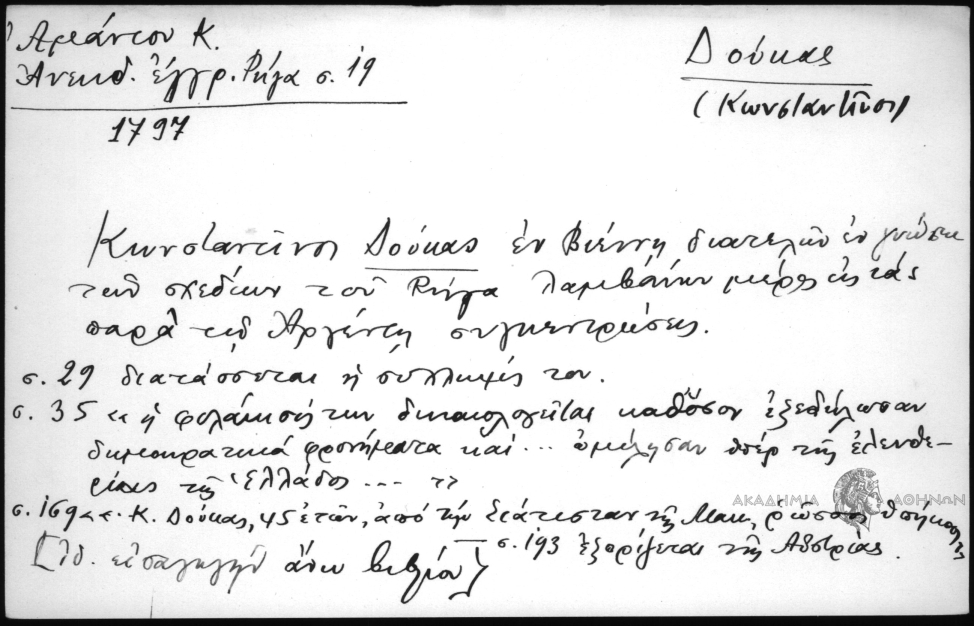 Ἀμάντου Κ.
Ἀνεκδ. ἔγγρ. Ρήγα σ. 19
1797
Δούκας
(Κωνσταντῖνος)
Κωνσταντῖνος Δούκας ἐν Βιέννῃ διατελῶν ἐν γνώσει
τῶν σχεδίων τοῦ Ρήγα λαμβάνων μέρος εἰς τὰς
παρὰ τῷ Ἀργέντῃ συγκεντρώσεις.
σ. 29 διατάσσεται ἡ σύλληψίς του.
σ. 35 « ἡ φυλάκισή των δικαιολογεῖται καθόσον ἐξεδήλωσαν
δημοκρατικά φρονήματα καί ... ὡμίλησαν ὑπέρ τῆς ἐλευθε-
ρίας τῆς Ἑλλάδος ... »
σ. 169 «. Κ. Δούκας, 45 ἐτῶν, ἀπό τήν Σιάτισταν τῆς Μακ, ρῶσσος ὑπήκοος
— σ. 193 ἐξορίζεται τῆς Αὐστρίας.
[ἰδ. εἰσαγωγήν ἄνω βιβλίου]
ΑΚΑΔΗΜΙΑ ΑΘΗΝΩΝ